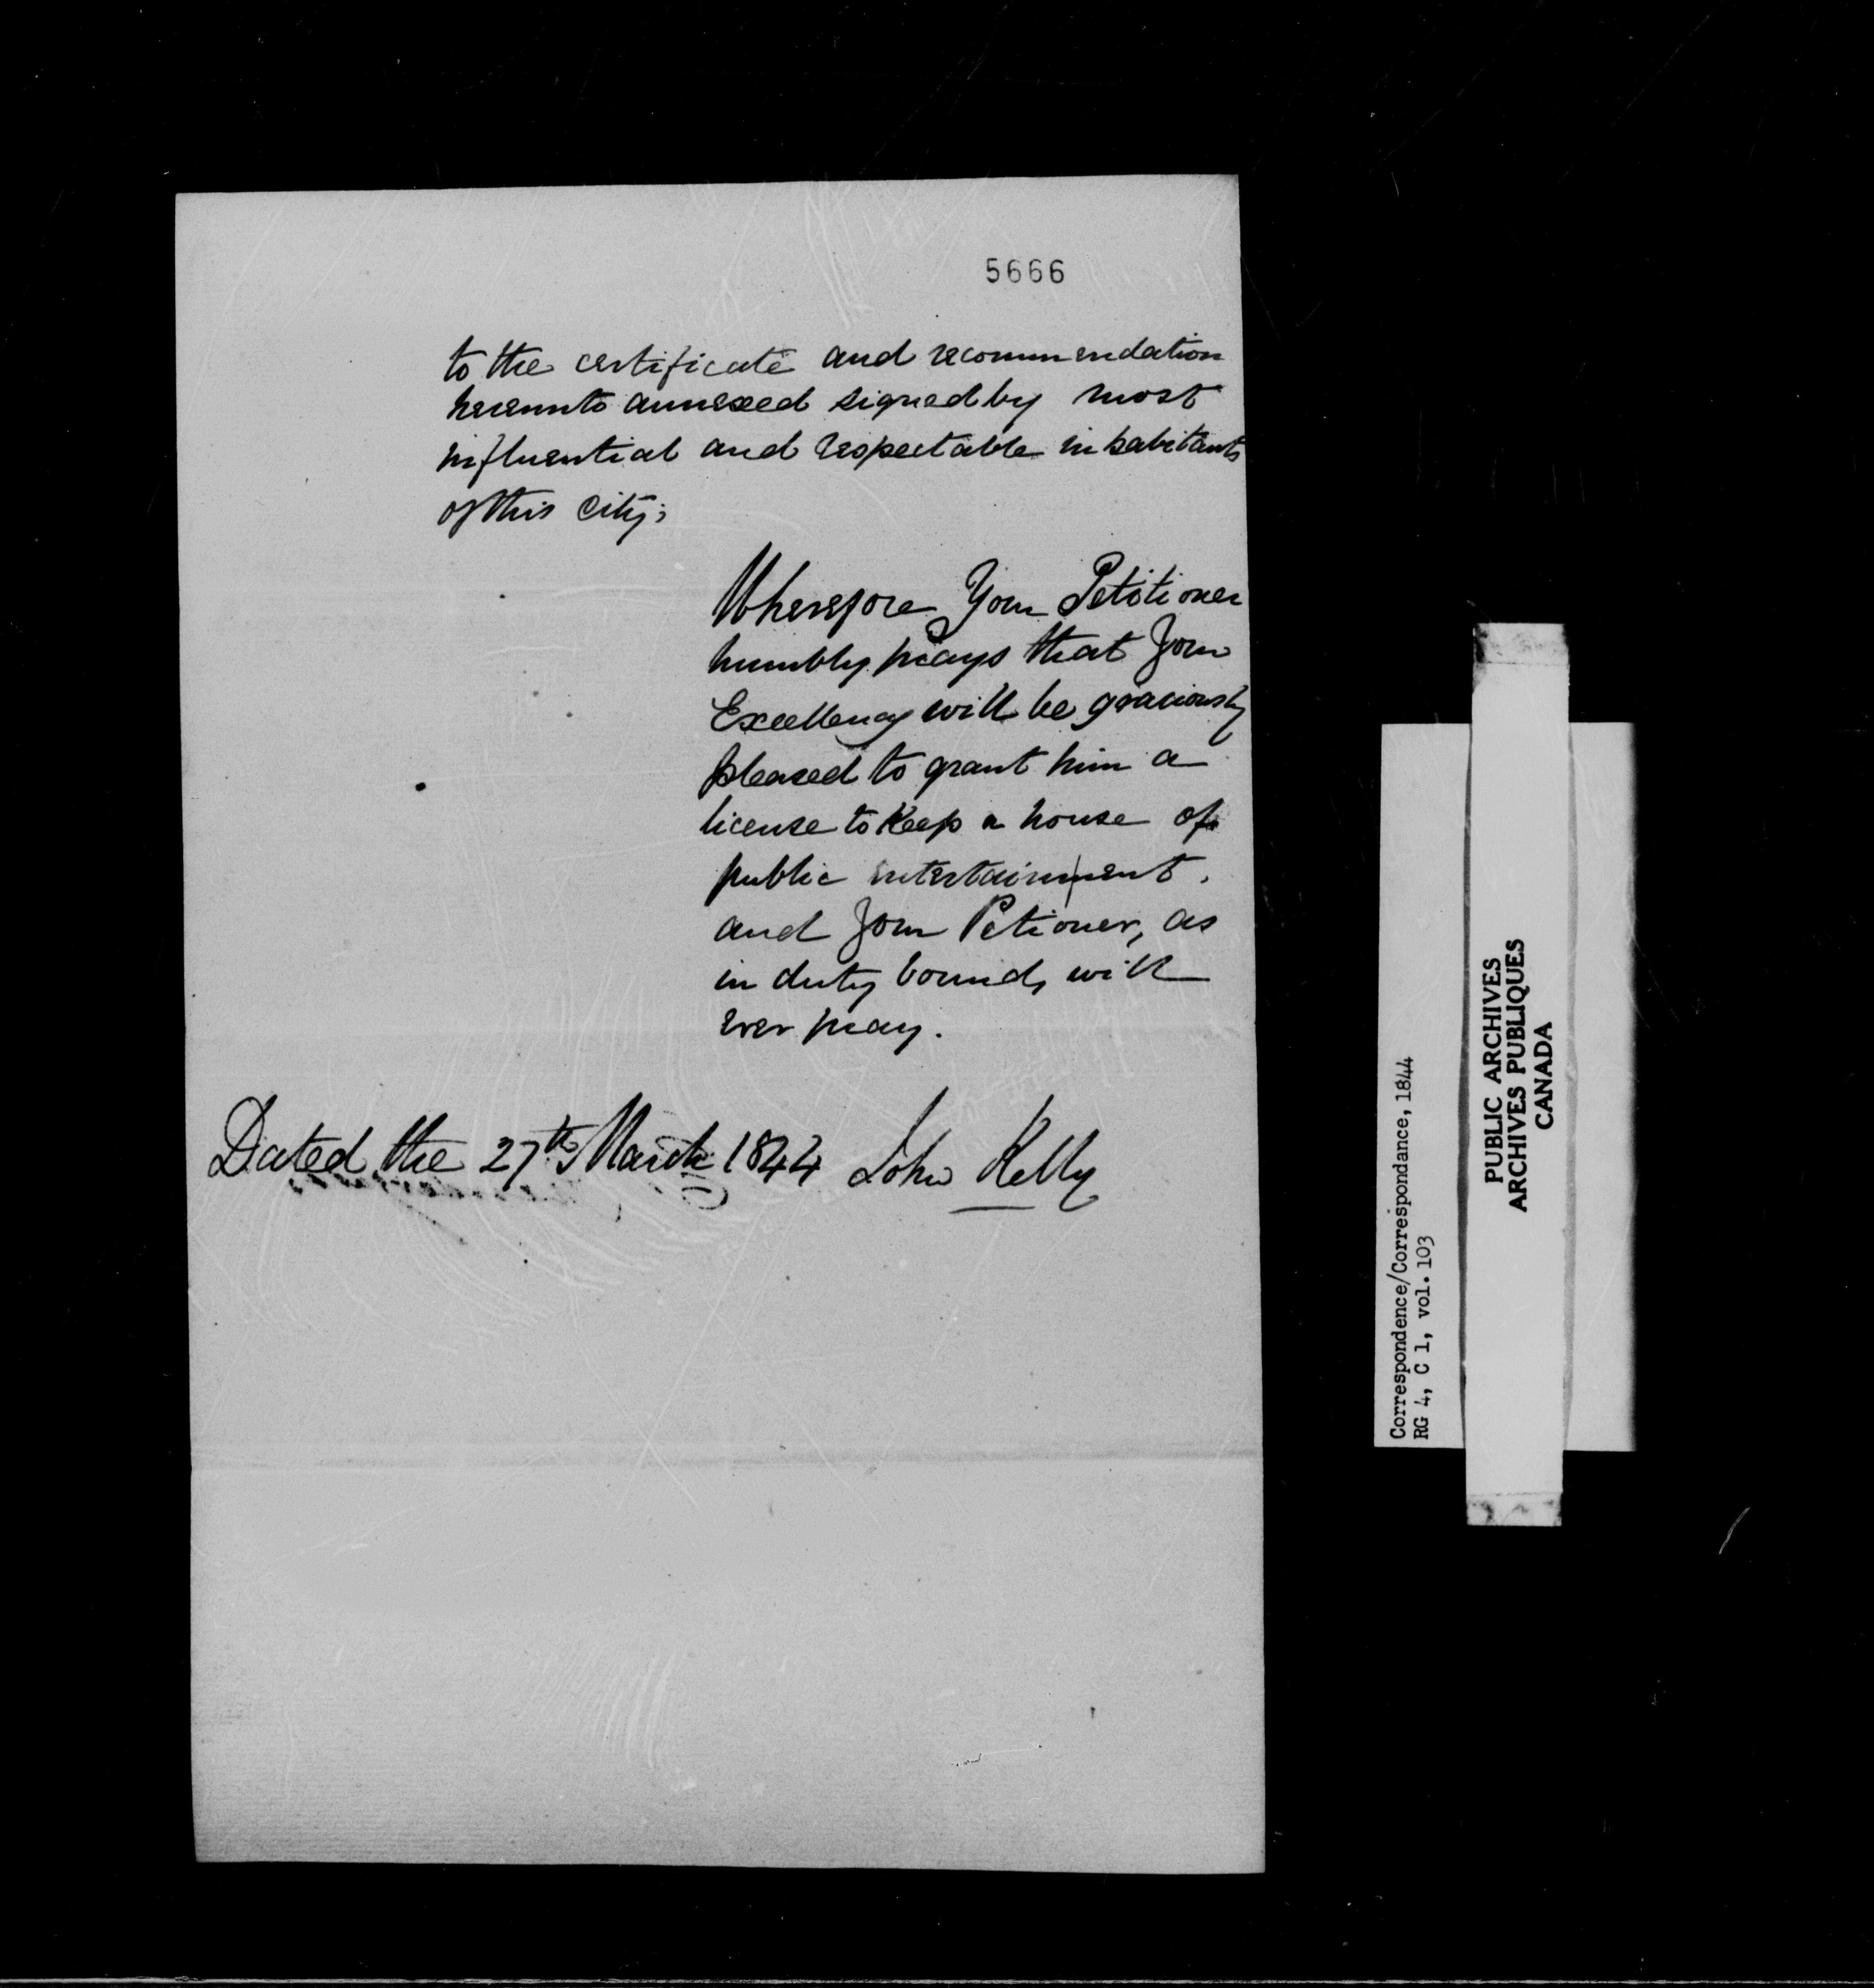 5666
to the certificate and recommendation
hereunto annexed signed by most
influential and respectable inhabitants
of this City;
Wherefore Your Petitioner
humbly prays that Your
Excellency will be graciously
pleased to grant him a
license to Keep a house of
public entertainment,
and Your Petioner, as
in duty bound, will
ever pray.
Dated the 27th March 1844 John Kelly
Correspondence/Correspondance, 1844
RG 4, C 1, vol. 103
PUBLIC ARCHIVES
ARCHIVES PUBLIQUES
CANADA